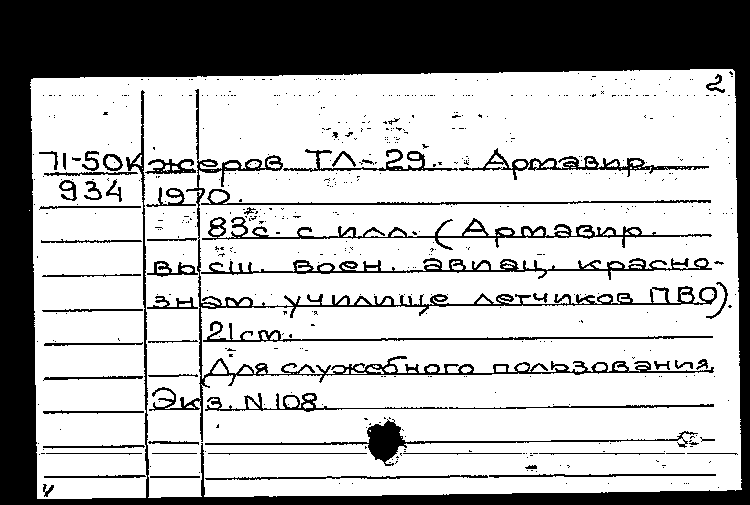 2
71-50К жеров ТЛ-29. Армавир,
934 1970.
83с. с илл. (Армавир.
высш. воен. авиац. красно-
знам. училище летчиков ПВО).
21 см.
Для служебного пользования,
Экз. N 108.